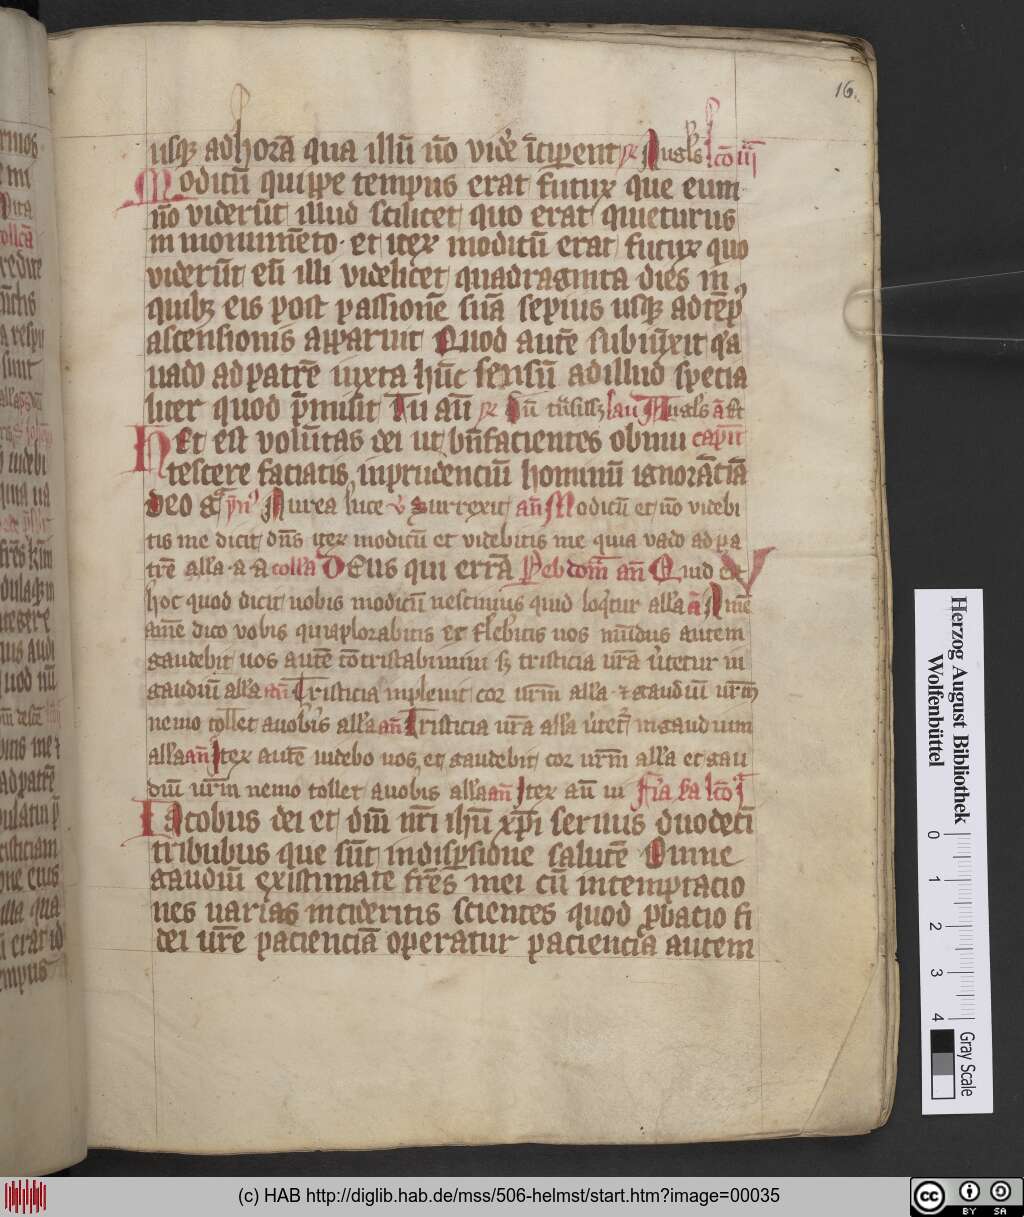 16.
usq̢ ad horā qua illū nō vidē īciperent ꝶ Angl's lcō iii
Modicū quippe tempus erat futuꝝ que eum
nō viderūt illud scilicet quo erat quieturus
in monumēto · et iteꝝ modicū erat futuꝝ quo
viderūt eū illi videlicet quadraginta dies in
quibꝫ eis post passionē suā sepius usq̢ ad tēpꝰ
ascensionis apparuit Quod autē subiūxit q'a
uado ad patrē iuxta hūc sensū ad illud specia
liter quod p̄misit Tu aū ꝶ
Hec est volūtas dei ut bn̄facientes obmu cap̄lm
tescere faciatis inprudenciū hominū ignorātiā
deo gͣ Aurea luce ꝟ Surrexit an̄ Modicū et nō videbi
tis me dicit dn̄s iteꝝ modicū et videbitis me quia vado ad pa
trē all'a · a · a coll'a DEus qui errā Quid est
hoc quod dicit uobis modicū nescimus quid loq̄tur all'a an̄ Amē
amē dico vobis quia plorabitis et flebitis uos mūdus autem
gaudebit uos autē cōtristabimini sꝫ tristicia ur̄a u'tetur in
gaudiū all'a an̄ Tristicia inpleuit cor ur̄m all'a · ⁊ gaudiū ur̄m
nemo tollet auob's all'a an̄ Tristicia ur̄a all'a u'tet' in gaudium
all'a an̄ Iteꝝ autē uidebo uos et gaudebit cor ur̄m all'a et gau
diū ur̄m nemo tollet auobis all'a an̄ Iteꝝ aū ui
Iacobus dei et dn̄i nr̄i ihū xp̄i seruus duodecī
tribubus que sūt in dispsione salutē Omne
gaudiū existimate fr̄es mei cū in temptacio
nes uarias incideritis scientes quod p̱batio fi
dei ur̄e pacienciā operatur paciencia autem
Herzog August Bibliothek
Wolfenbüttel
0 1 2 3 4
Gray Scale
(c) HAB http://diglib.hab.de/mss/506-helmst/start.htm?image=00035
cc BY SA